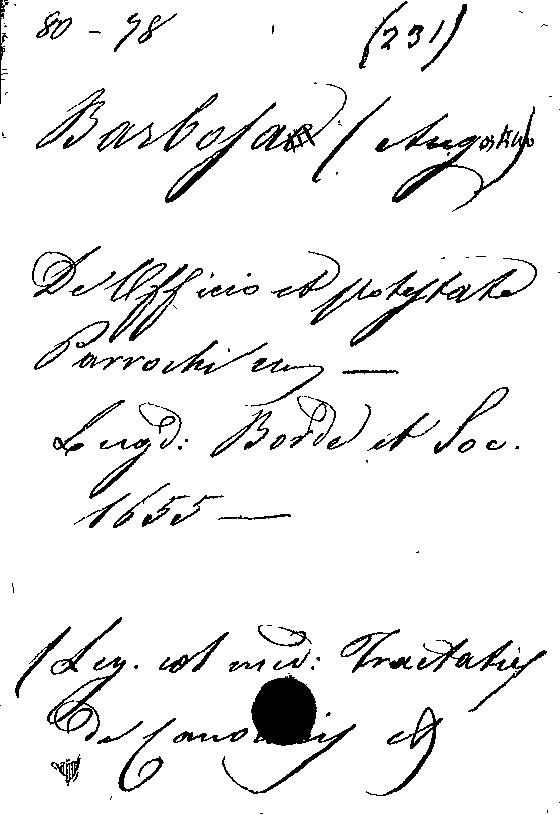 80 - 78 (231)
Barbosa (Augostino)
De Officio et potestate
Parrochi —
Lugd: Borde et Soc.
1655 —
(Leg. est Tractatus
de Canonicis etc)